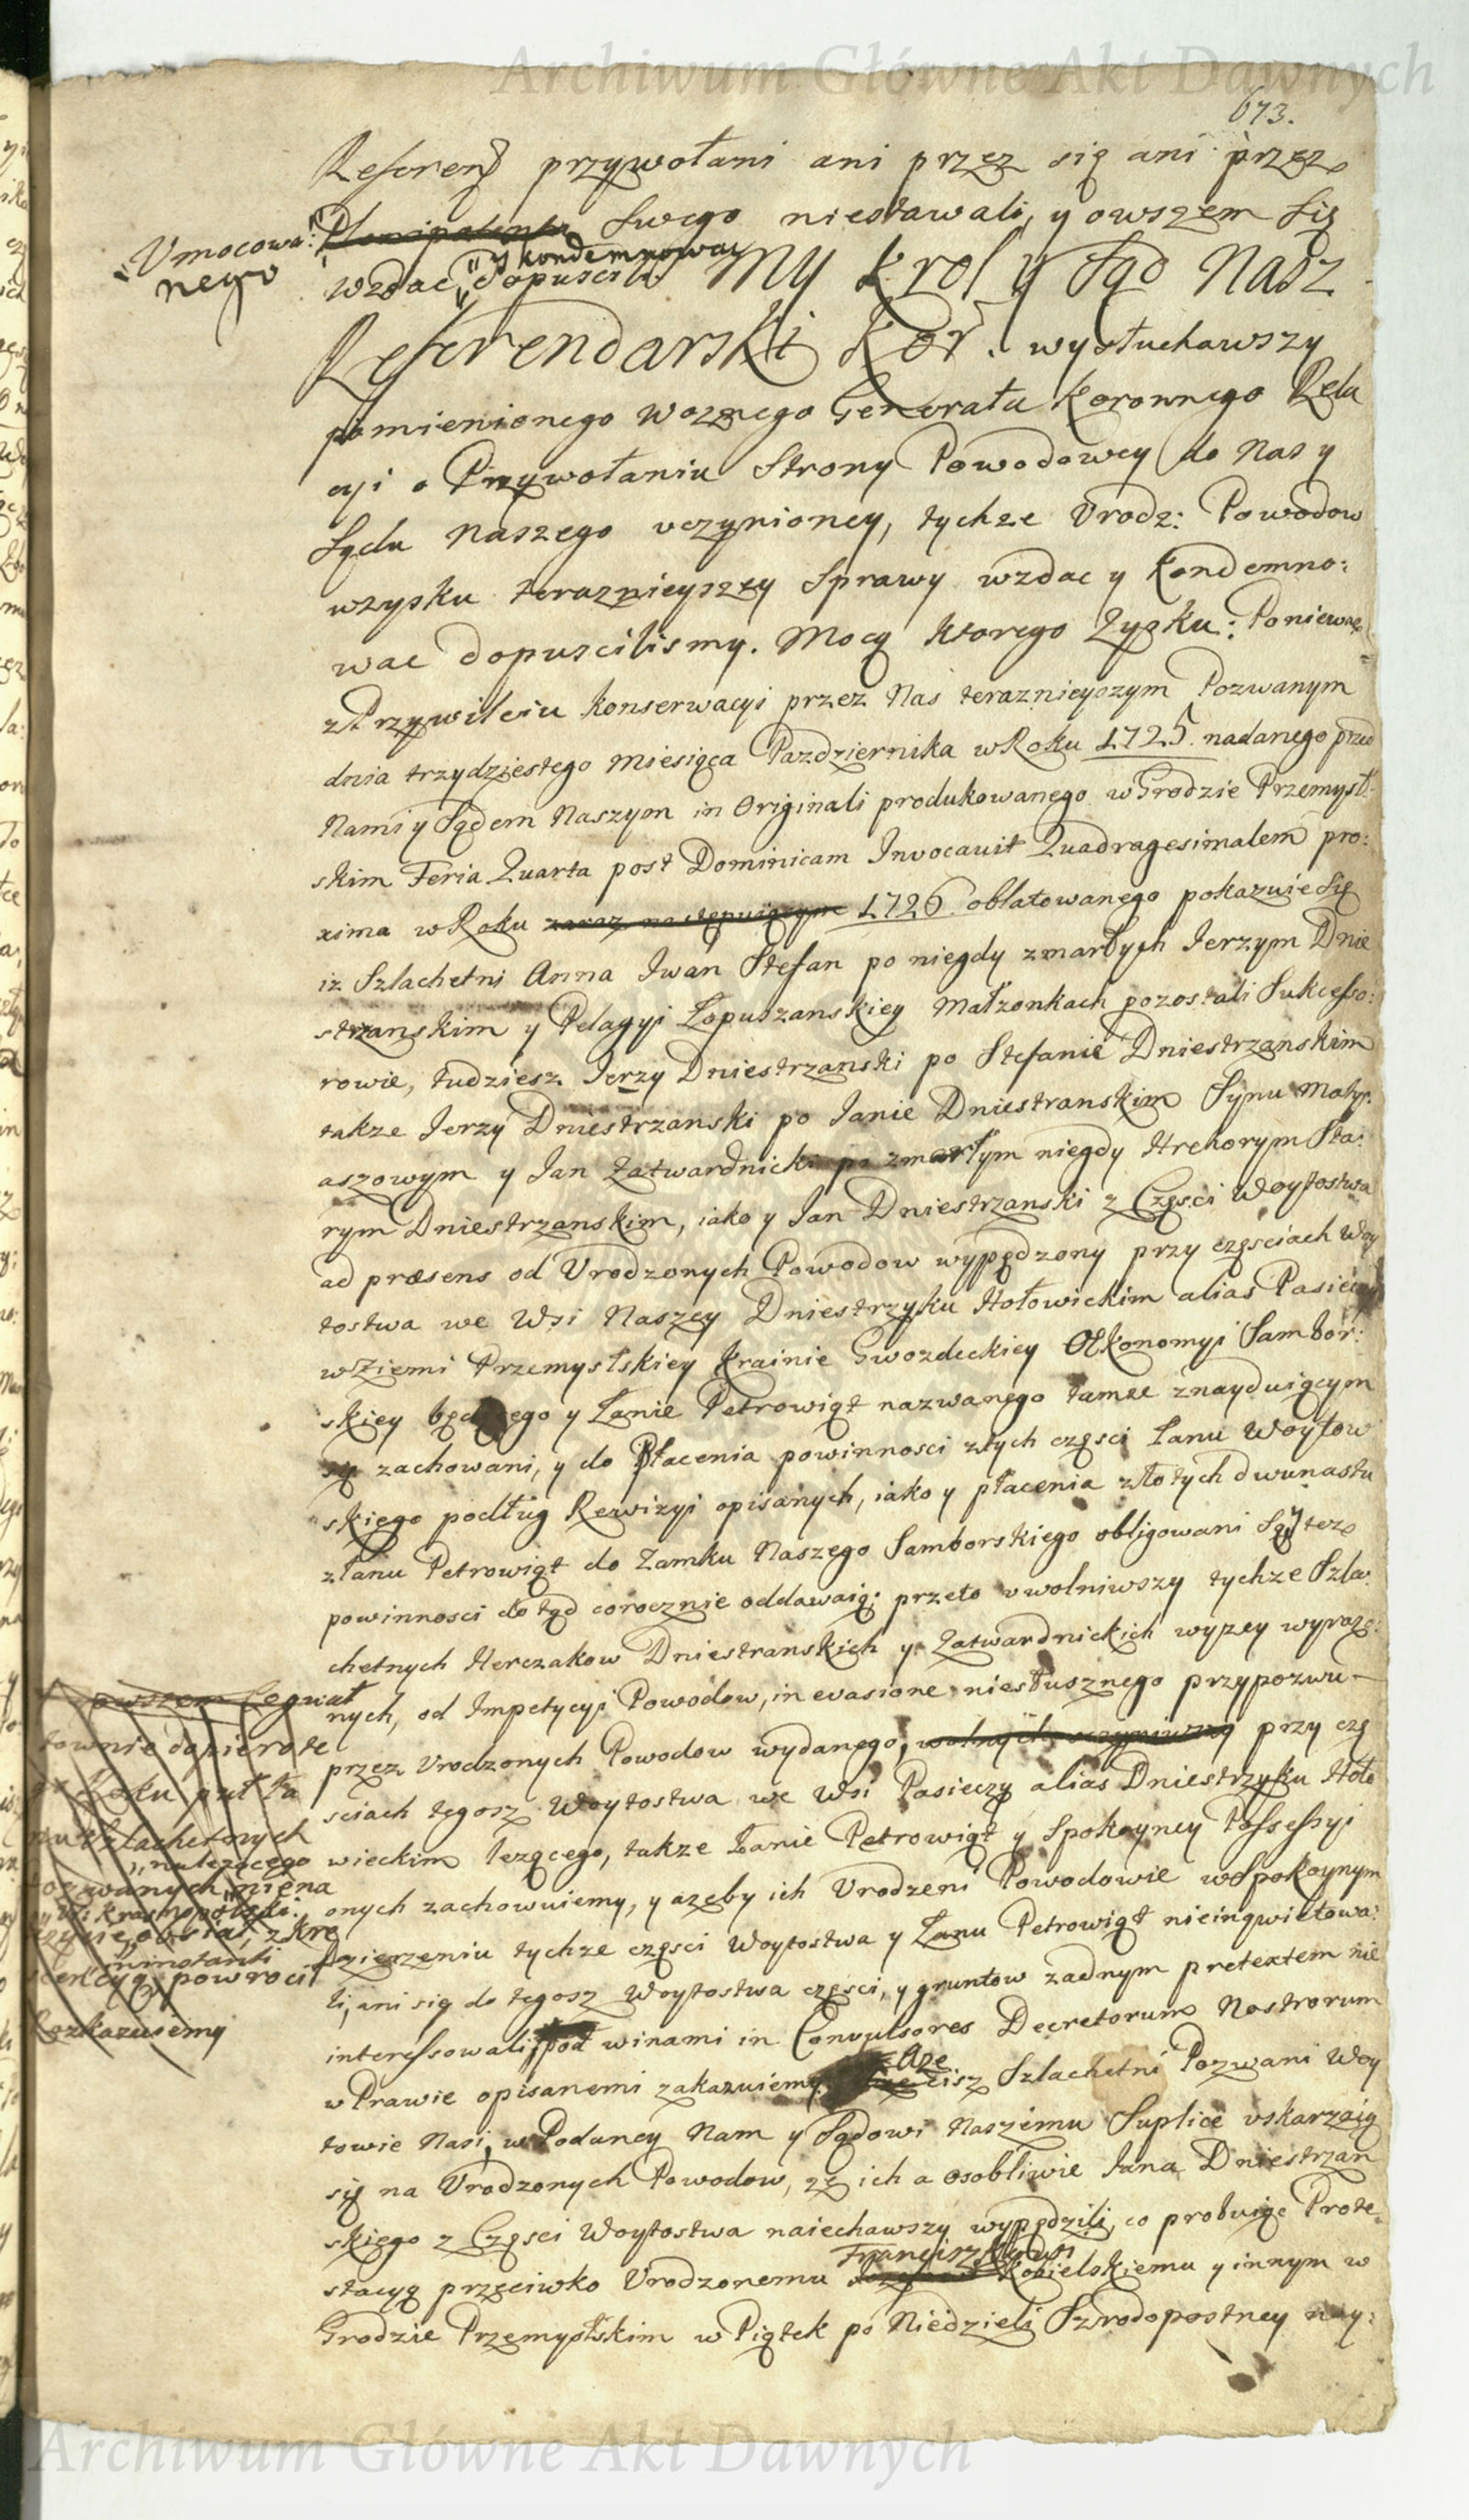 Archiwum Główne Akt Dawnych
673.
Referend przywołani ani przez się ani przez
"Umocowa: nego
Plenipotenta swego niestawali, y owszem się
wzdac "y kondemnowac dopuscili My Krol y Sąd Nasz
Referendarski Kor. wysłuchawszy
pomienionego Woznego Generała Koronnego Rela
cyi o Przywołaniu Strony Powodowey do Nas y
Sądu Naszego uczynioney, tychze Urodz: Powodow
wzysku teraznieyszey Sprawy wzdac y Kondemno:
wac dopuscilismy. Mocą ktorego Zysku: Poniewaz
z Przywileiu Konserwacyi przez Nas teraznieyszym Pozwanym
dnia trzydziestego Miesiąca Pazdziernika w Roku 1725. nadanego przed
Nami y Sądem Naszym in Originali produkowanego w Grodzie Przemysl:
skim Feria Quarta post Dominicam Invocavit Quadragesimalem pro:
xima w Roku zaraz następuiącym 1726. oblatowanego pokazuie się
iz Szlachetni Anna Iwan Stefan po niegdy zmarłych Ierzym Dnie
strzanskim y Pelagyi Łopuszanskiey Małzonkach pozostali Sukcesso:
rowie, tudziesz Ierzy Dniestrzanski po Stefanie Dniestrzanskim
takze Ierzy Dniestrzanski po Ianie Dniestranskim Synu Maty:
aszowym y Ian Zatwardnicki po zmarłym niegdy Hrehorym Sta:
rym Dniestrzanskim, iako y Ian Dniestrzanski z Częsci Woytostwa
ad præsens od Urodzonych Powodow wypędzony przy częsciach Woy
tostwa we Wsi Naszey Dniestrzyku Hołowickim alias Pasieczny
w Ziemi Przemyslskiey Krainie Gwozdeckiey Oekonomyi Sambor:
skiey będącego y Łanie Petrowiąt nazwanego tamze znayduiącym
są zachowani, y do Płacenia powinnosci z tych częsci Łanu Woytow
skiego podług Rewizyi opisanych, iako y płacenia złotych dwunastu
z Łanu Petrowiąt do Zamku Naszego Samborskiego obligowani są y tez
powinnosci dotąd corocznie oddawaią; przeto uwolniwszy tychze Szla:
chetnych Herczakow Dniestranskich y Zatwardnickich wyzey wyraze:
nych, od Impetycyi Powodow, in evasione niesłusznego przypozwu
przez Urodzonych Powodow wydanego, wolnych uczyniwszy przy czę
sciach tegosz Woytostwa we Wsi Pasieczy alias Dniestrzyku Hoło
wieckim lezącego, takze Łanie Petrowiąt y Spokoyney Possessyi
onych zachowuiemy, y azeby ich Urodzeni Powodowie w Spokoynym
Dzierzeniu tychze częsci Woytostwa y Łanu Petrowiąt nieinqwietowa:
li, ani się do tegosz Woytostwa częsci, y gruntow zadnym pretextem nie
interessowali, pod winami in Convulsores Decretorum Nostrorum
w Prawie opisanemi zakazuiemy. Aze cisz Szlachetni Pozwani Woy
towie Nasi, w Podaney Nam y Sądowi Naszemu Suplice uskarzaią
się na Urodzonych Powodow, ze ich a osobliwie Iana Dniestrzan
skiego z Częsci Woytostwa naiechawszy wypędzili, co probuiąc Prote:
stacyą przeciwko Urodzonemu Franciszkowi Kobielskiemu y innym w
Grodzie Przemyslskim w Piątek po Niedzieli Szrodopostney nay:
owszem
townie dopiero te
Roku
Szlachetnych
"nalezącego
pozwanych niena
powrocił
Rozkazuiemy
Archiwum Główne Akt Dawnych